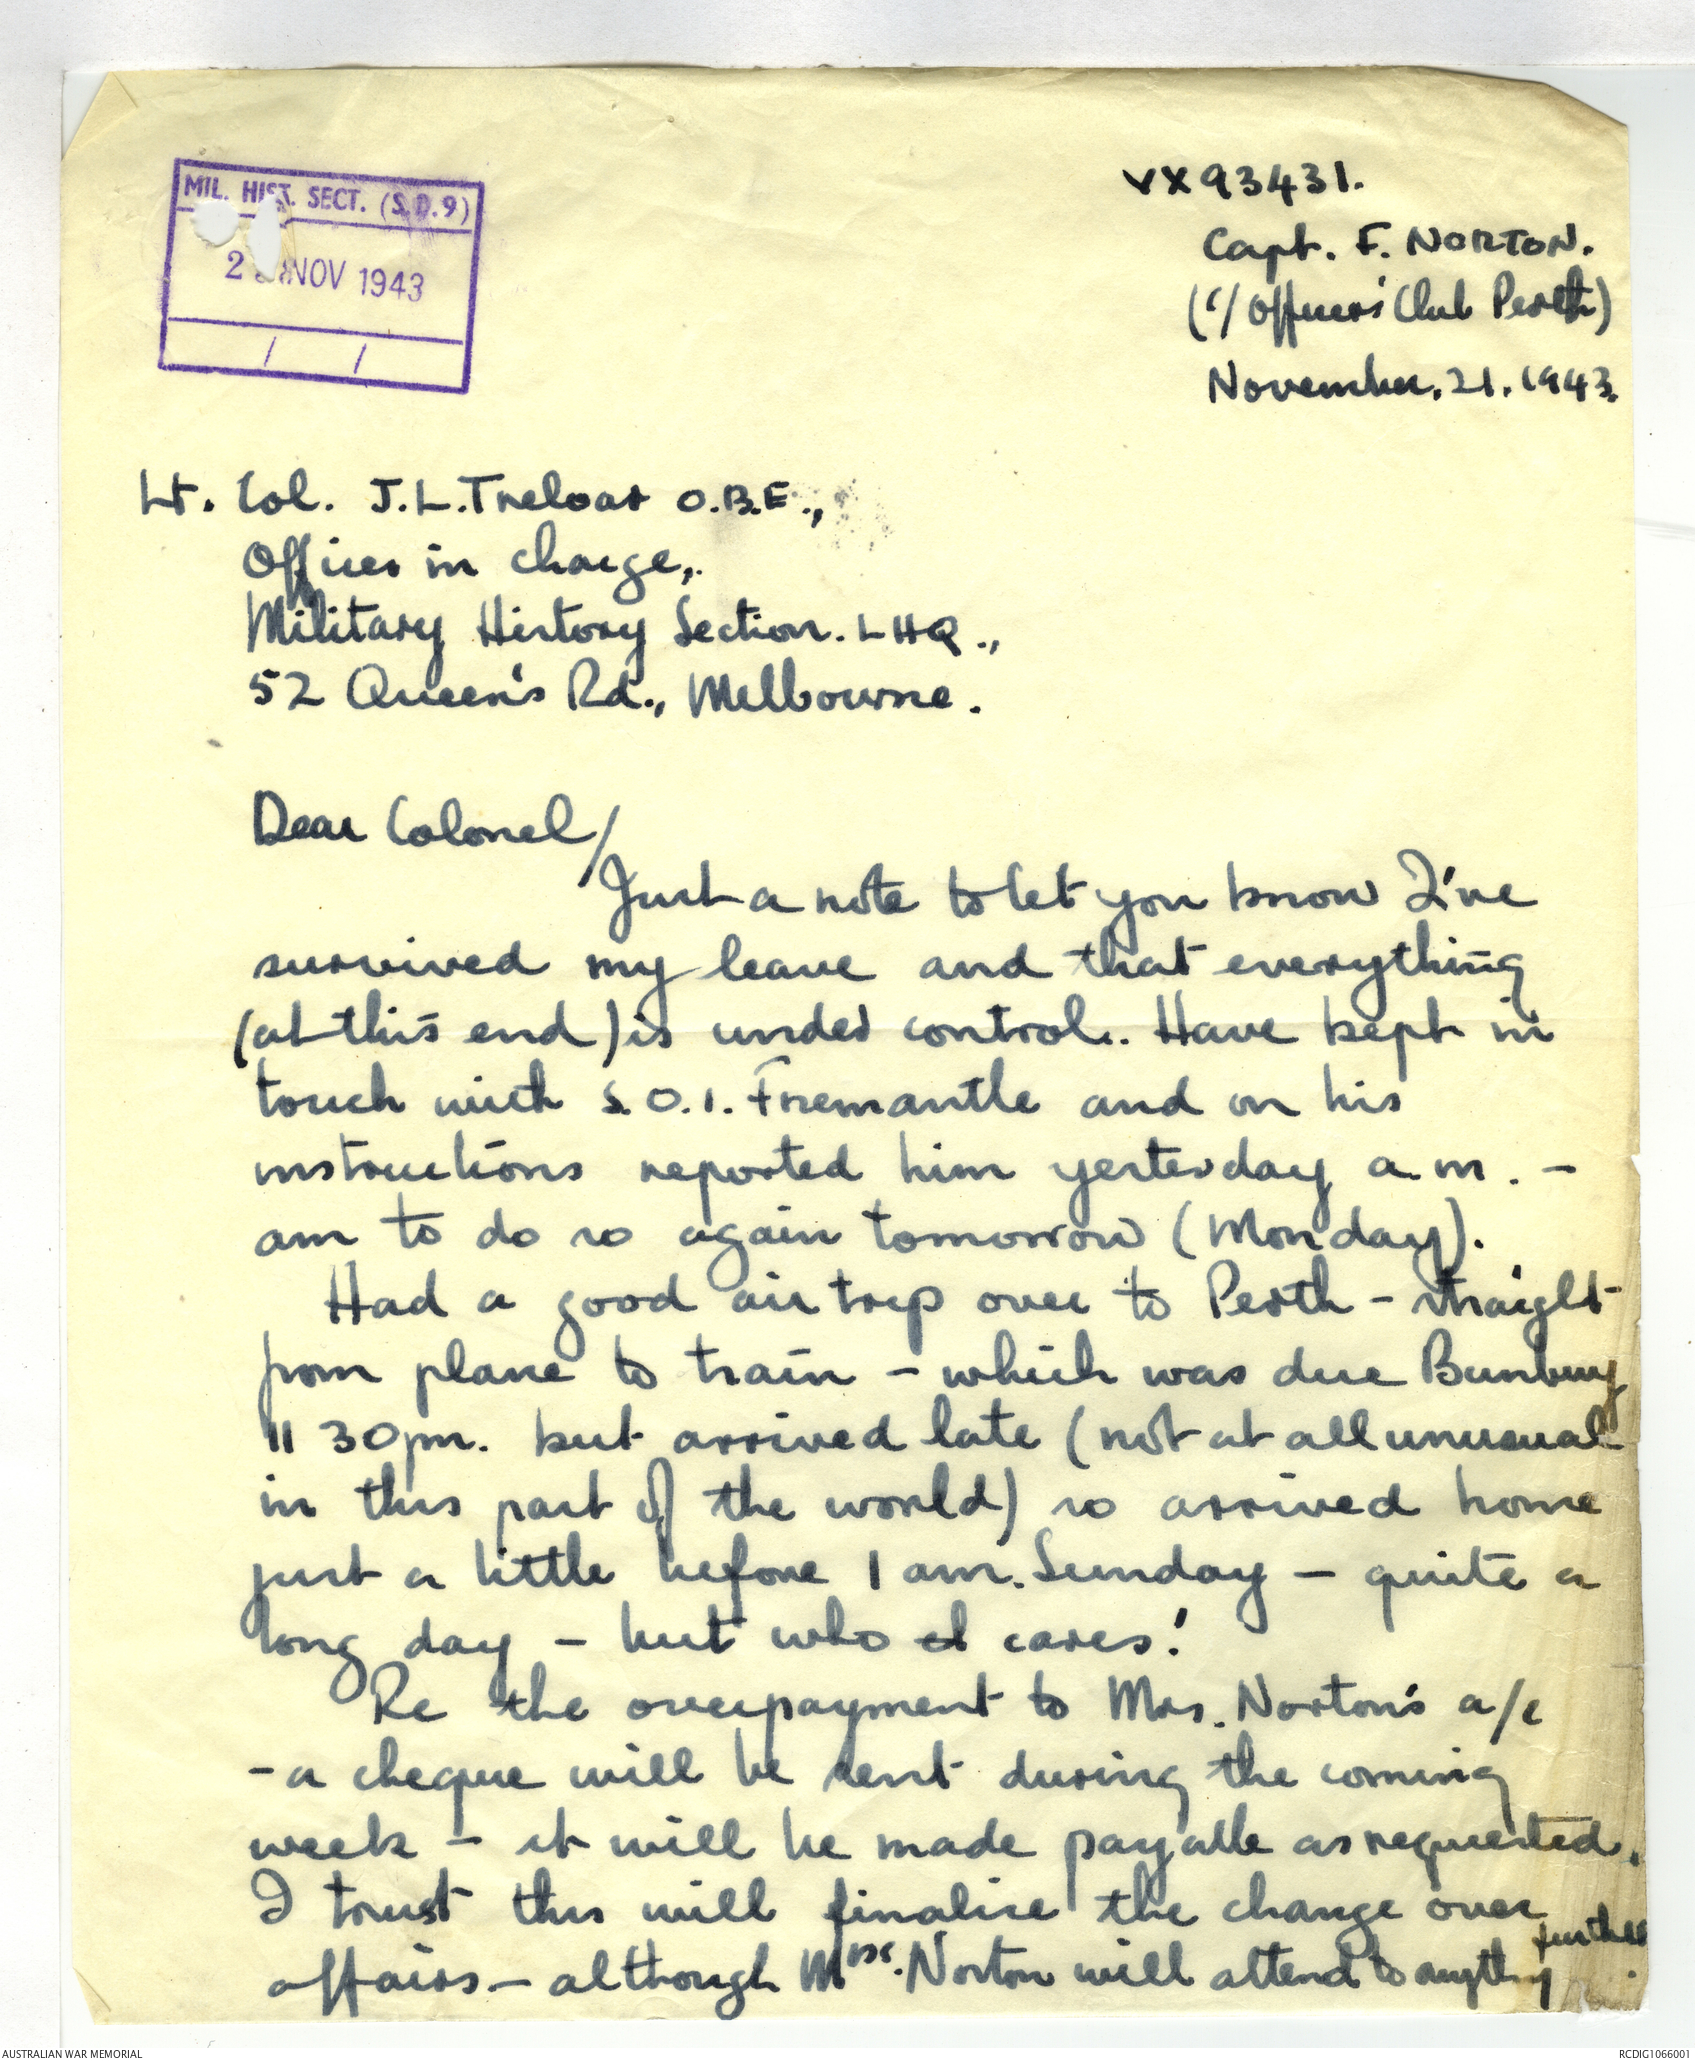 MIL. HIST. SECT. (S.D.9)
2 NOV 1943
/ /
VX93431.
Capt. F. NORTON.
(c/ Officers' Club Perth)
November. 21. 1943.
Lt. Col. J.L. Treloar O.B.E.,
Officer in charge,.
Military History Section. LHQ.,
52 Queen's Rd., Melbourne.
Dear Colonel/
Just a note to let you know I've
survived my leave and that everything
(at this end) is under control. Have kept in
touch with S.O.1. Fremantle and on his
instructions reported him yesterday a.m. -
am to do so again tomorrow (Monday).
Had a good air trip over to Perth - straight
from plane to train - which was due Bunbury
11 30pm. but arrived late (not at all unusual
in this part of the world) so arrived home
just a little before 1 am. Sunday - quite a
long day - but who cares!
Re the overpayment to Mrs. Norton's a/c
- a cheque will be sent during the coming
week - it will be made payable as requested.
I trust this will finalise the change over
affairs - although Mrs. Norton will attend to anything further.
AUSTRALIAN WAR MEMORIAL
RCDIG1066001